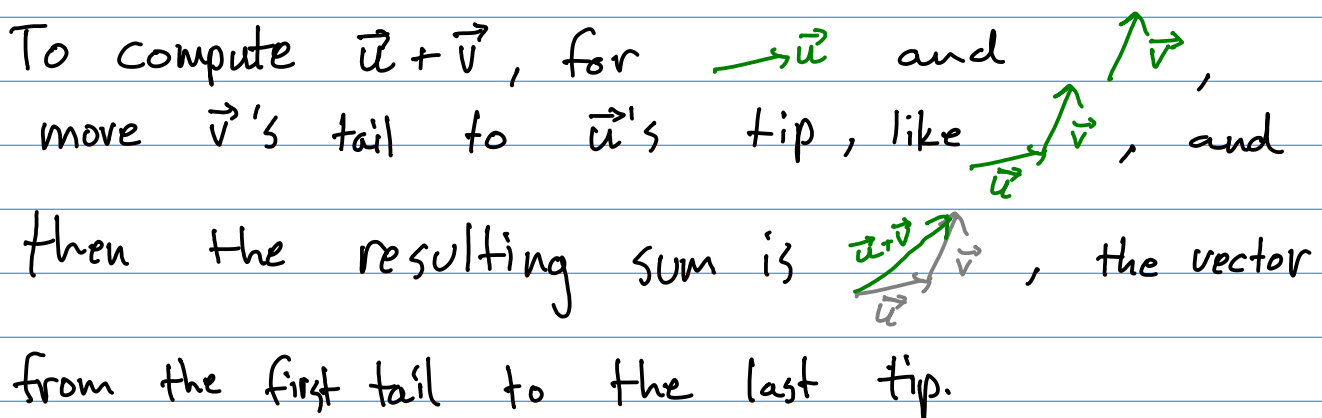 To compute u⃗ + v⃗, for u⃗ and v⃗,
move v⃗'s tail to u⃗'s tip, like u⃗ v⃗, and
then the resulting sum is u⃗+v⃗ u⃗ v⃗, the vector
from the first tail to the last tip.